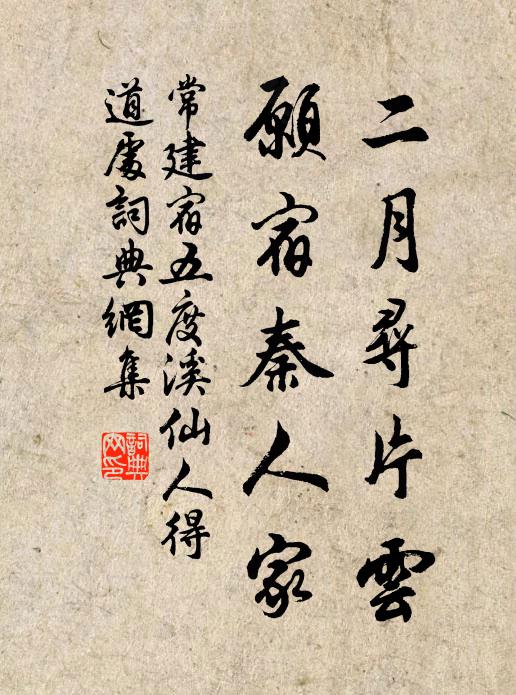 二月尋片雲
願宿秦人家
常建宿五度溪仙人得
道處詞典網集
詞典
网印